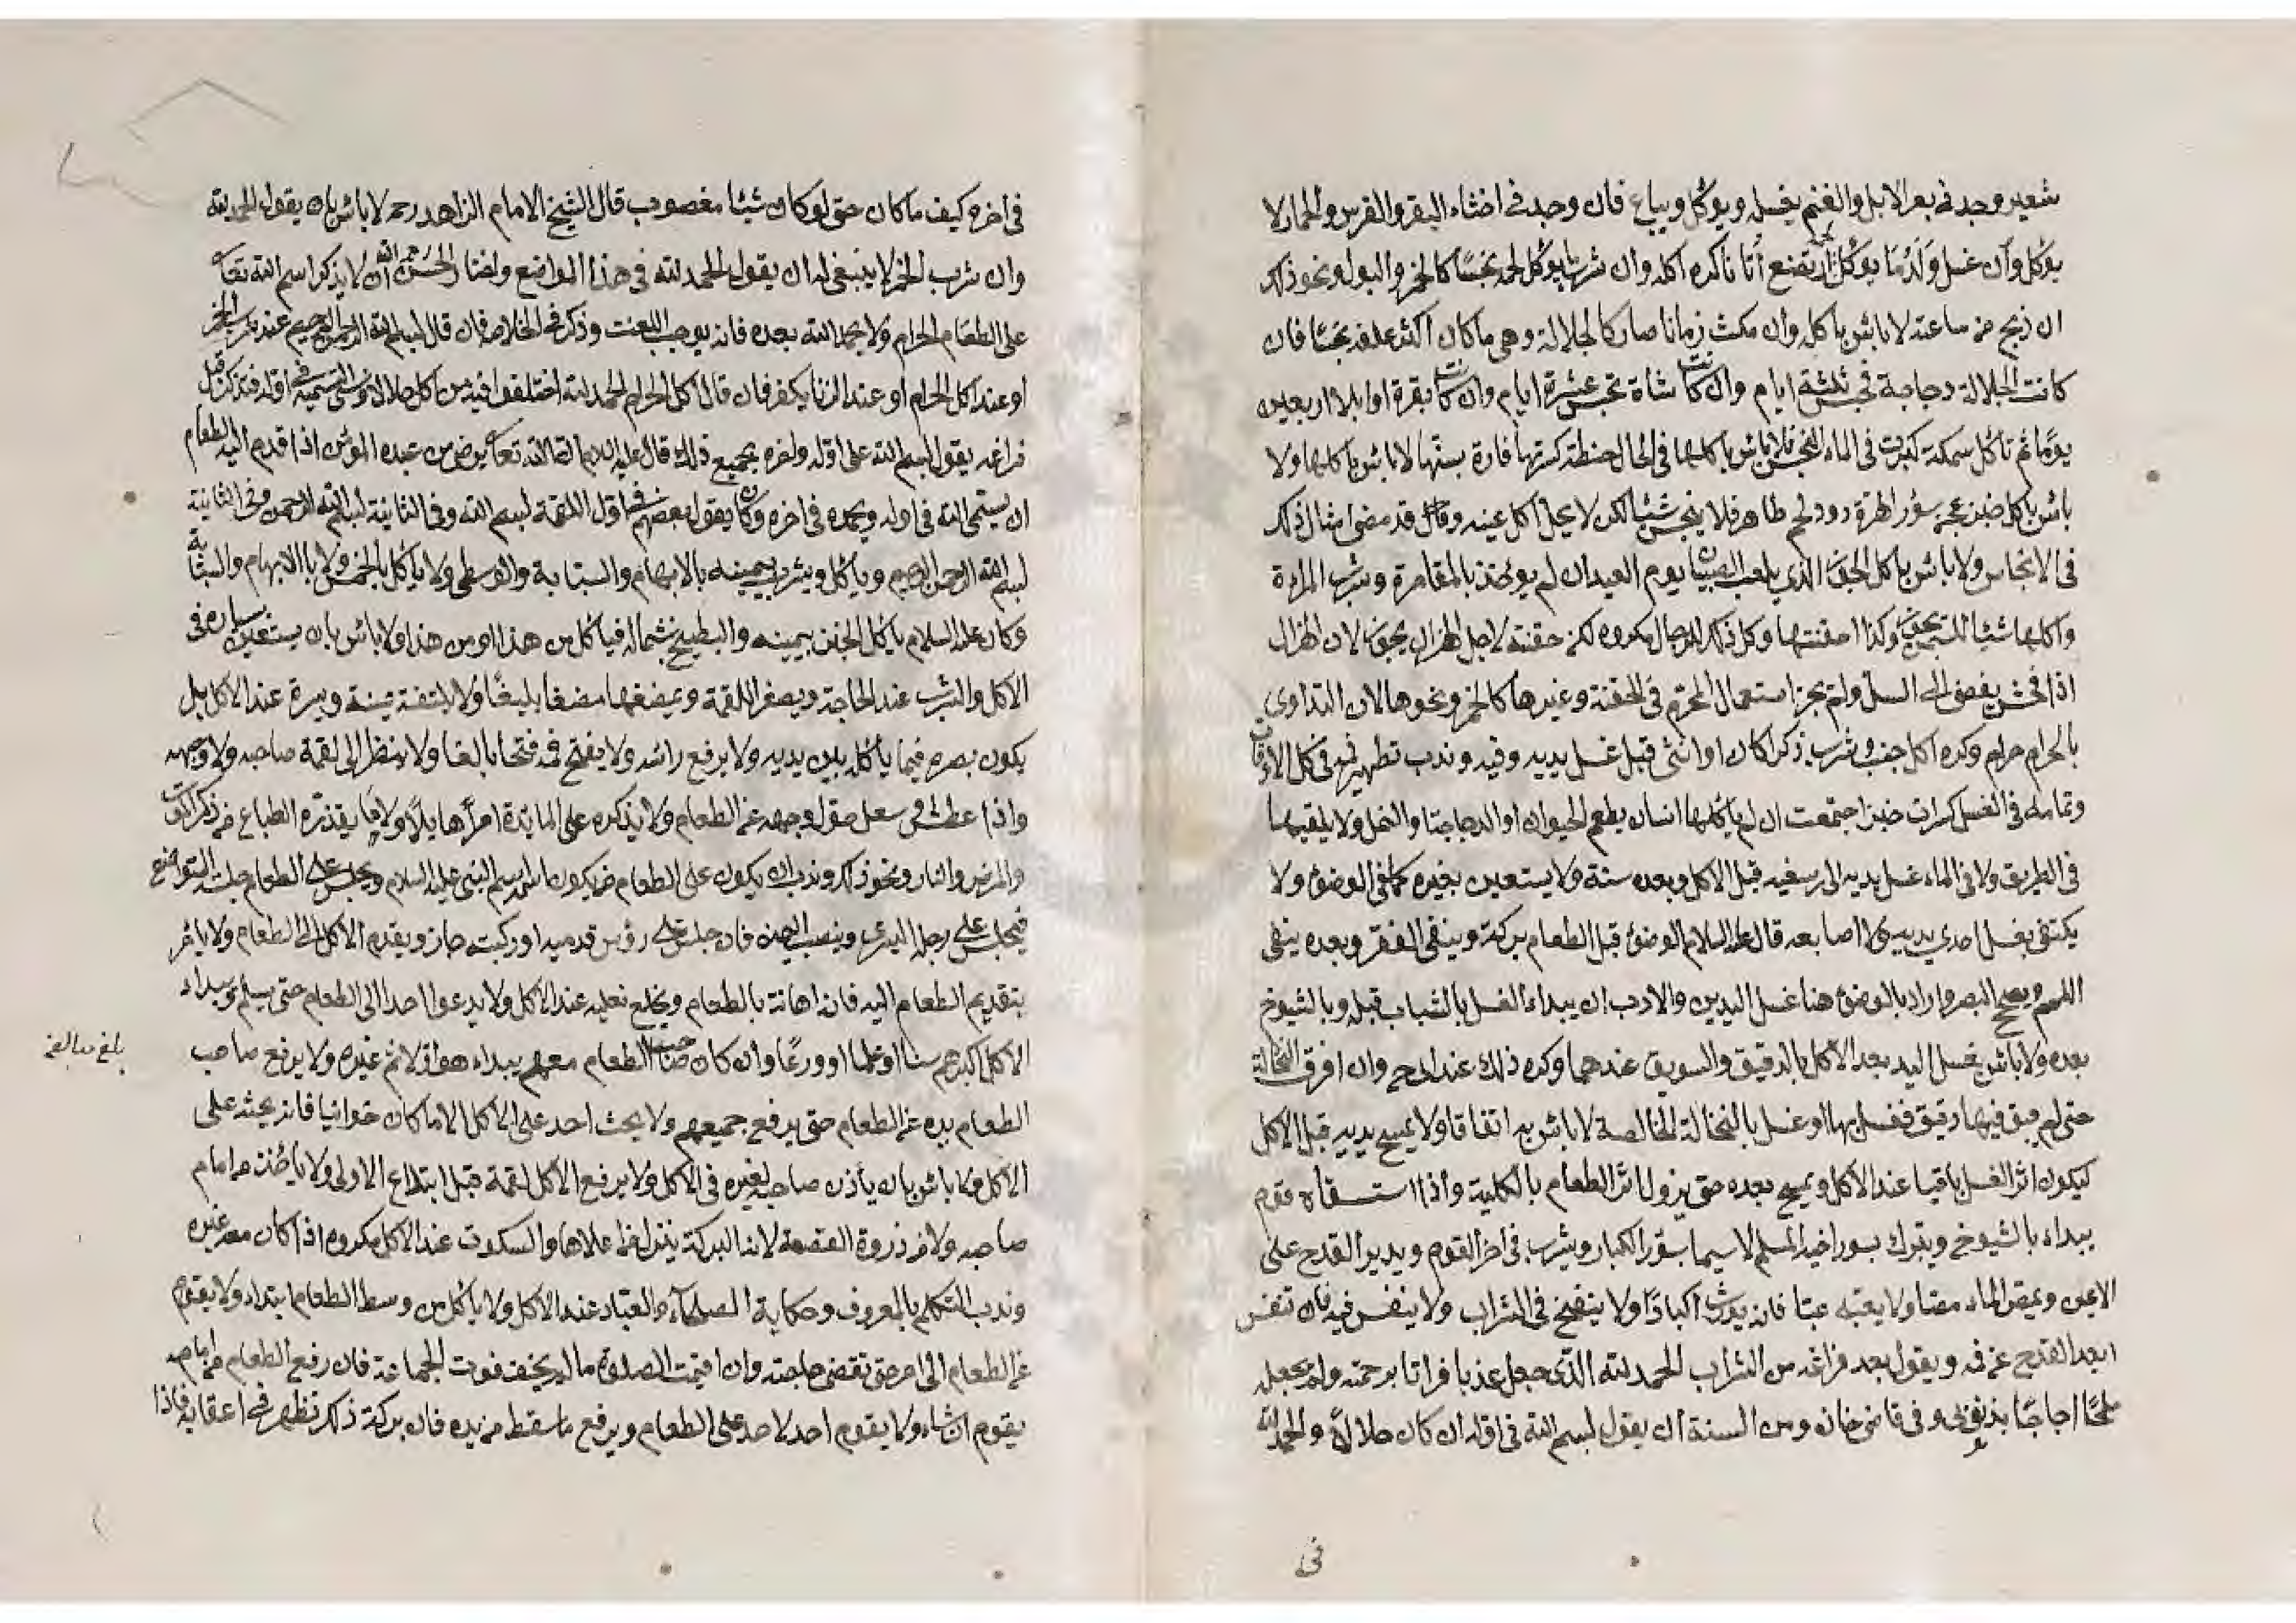 شعير وجد في بعر الابل والغنم يغسل ويؤكل ويباع فان وجد في اخثاء البقر والفرس والحمار لا
يؤكل وان غسل ولد ما يؤكل اكله وان شرب ما يؤكل لحمه نجسا كالخمر والبول ونحو ذلك
ان ذبح من ساعته لا باس باكله وان مكث زمانا صار كالجلالة وهي ما كان اكثر علفه نجسا فان
كانت الجلالة دجاجة تحبس ثلثة ايام وان كانت شاة تحبس عشرة ايام وان كانت بقرة او ابلا اربعين
يوما ثم تأكل سمكة كبرت في الماء النجس فلا باس باكلها في الحال حنطة كسرتها فارة بسنها لا باس باكلها ولا
باس باكل خبز عجن بسؤر الهرة دود لحم طاهر فلا ينجس شيئا لكن لا يحل اكل عينه وقال قد مضى امثال ذلك
في الانجاس ولا باس باكل الجوز الذي يلعب الصبيان يوم العيد ان لم يؤخذ بالمقامرة وشرب المراة
واكلها شيئا للسمن يجوز وكذا احقنتها وكل ذلك للرجال مكروه لكن حقنته لاجل الهزال يجوز لان الهزال
اذا فحش يفضى الى السل ولم يجز استعمال المحرم في الحقنة وغيرها كالخمر ونحوها لان التداوى
بالحرام حرام وكره اكل جنب وشربه ذكرا كان او انثى قبل غسل يديه وفيه وندب تطهير فمه في كل الاوقات
وتمامه في الغسل كسرات خبز اجتمعت ان لم ياكلها انسان يطعم الحيوان او الدجاجة والنمل ولا يلقيها
في الطريق ولا في الماء غسل يديه الى رسغيه قبل الاكل وبعده سنة ولا يستعين بغيره كما في الوضؤ ولا
يكتفى بغسل احدى يديه ولا اصابعه قال عليه السلام الوضؤ قبل الطعام بركة وينفى الفقر وبعده ينفى
اللمم ويصح البصر واراد بالوضؤ هنا غسل اليدين والادب ان يبداء الغسل بالشباب قبله وبالشيوخ
بعده ولا باس بغسل اليد بعد الاكل بالدقيق والسويق عندهما وكره ذلك عند ابى ح وان افرق النخالة
حتى لم يبق فيها دقيق فغسل بها او غسل بالنخالة الخالصة لا باس به اتفاقا ولا يمسح يديه قبل الاكل
ليكون اثر الغسل باقيا عند الاكل ويمسح بعده حتى يزول اثر الطعام بالكلية واذا استسقاه قوم
يبداء بالشيوخ ويتبرك بسور اخيه المسلم لا سيما بسؤر الكبار ويشرب في اخر القوم ويدير القدح على
الايمن ويمص الماء مصا ولا يعبه عبا فانه يورث اكبادا ولا ينفخ في الشراب ولا ينفس فيه فان تنفس
ابعد القدح عن فمه ويقول بعد فراغه من الشراب الحمد لله الذى جعل عذبا فراتا برحمته ولم يجعله
ملحا اجاجا بذنوبى وفي قاضى خان ومن السنة ان يقول بسم الله في اوله ان كان حلالا والحمد لله
في
في اخره كيف ما كان حتى لو كان شيئا مغصوب قال الشيخ الامام الزاهد رحمه لا باس بان يقول الحمد لله
وان شرب الخمر لا ينبغى له ان يقول الحمد لله في هذا المواضع ان لا يذكر اسم الله تعا
على الطعام الحرام ولا يحمد الله بعده فانه يوجب اللعنت وذكر في الخلاصه فان قال بسم الله الرحمن الرحيم عند شرب الخمر
او عند اكل الحرام او عند الزنا يكفر فان قال اكل الحرام الحمد لله اختلفوا فيه من اكل حلالا ونسى التسمية في اوله فتذكر قبل
فراغه يقول بسم الله على اوله واخره بجميع ذلك قال عليه السلام ان الله تعا يرضى من عبده المؤمن اذا قدم اليه الطعام
ان يسمى الله في اوله ويحمده في اخره وكان يقول بعضهم في اول اللقمة بسم الله وفي الثانية بسم الله الرحمن وفي الثانية
بسم الله الرحمن الرحيم وياكل ويشرب بيمينه بالابهام والسبابة والوسطى ولا ياكل بالخمس ولا بالابهام والسبابة
وكان عليه السلام ياكل الخبز بيمينه والبطيخ بشماله فياكل من هذا او من هذا ولا باس بان يستعين بيساره في
الاكل والشرب عند الحاجة ويصغر اللقمة ويمضغها مضغا بليغا ولا يلتفت يمنة ويسرة عند الاكل بل
يكون بصره فيما ياكل بين يديه ولا يرفع راسه ولا يفتح فمه فتحا بالغا ولا ينظر الى لقمة صاحبه ولا وجهه
واذا عطش وسعل حول وجهه عن الطعام ولا يذكره على المائدة امرا هائلا ولا ما يقذره الطباع من ذكر الموت
والمرض والنار ونحو ذلك وندب ان يكون على الطعام عليه السلام ويجلس على الطعام جلسة التواضع
فيجلس على رجله اليسرى وينصب اليمنى فان جلس على رؤس قدميه او ركبتيه جاز ويقدم الاكل الى الطعام ولا يامر
بتقديم الطعام اليه فانه اهانة بالطعام ويخلع نعليه عند الاكل ولا يدعوا احدا الى الطعام حتى يسلم ويبداء
الاكل اكبرهم سنا او علما او ورعا وان كان صاحب الطعام معهم يبداء هو اولا ثم غيره ولا يرفع صاحب
الطعام يده عن الطعام حتى يرفع جميعهم ولا يحث احد على الاكل الا ما كان خوانيا فانه يحثه على
الاكل ولا باس بان يأذن صاحبه لغيره في الاكل ولا يرفع الاكل لقمة قبل ابتلاع الاولى ولا ياخذ من امام
صاحبه ولا من ذروة القصعة لان البركة ينزل في اعلاها والسكوت عند الاكل مكروه اذا كان معه غيره
وندب التكلم بالمعروف وحكاية الصلحاء والعباد عند الاكل ولا ياكل من وسط الطعام ابتداء ولا يقوم
عن الطعام الى امر حتى تقضى حاجته وان اقيمت الصلوة ما لم يخف فوت الجماعة فان رفع الطعام من امامه
يقوم ان شاء ولا يقوم احد لاحد على الطعام ويرفع ما سقط من يده فان بركة ذلك تظهر في اعقابه فاذا